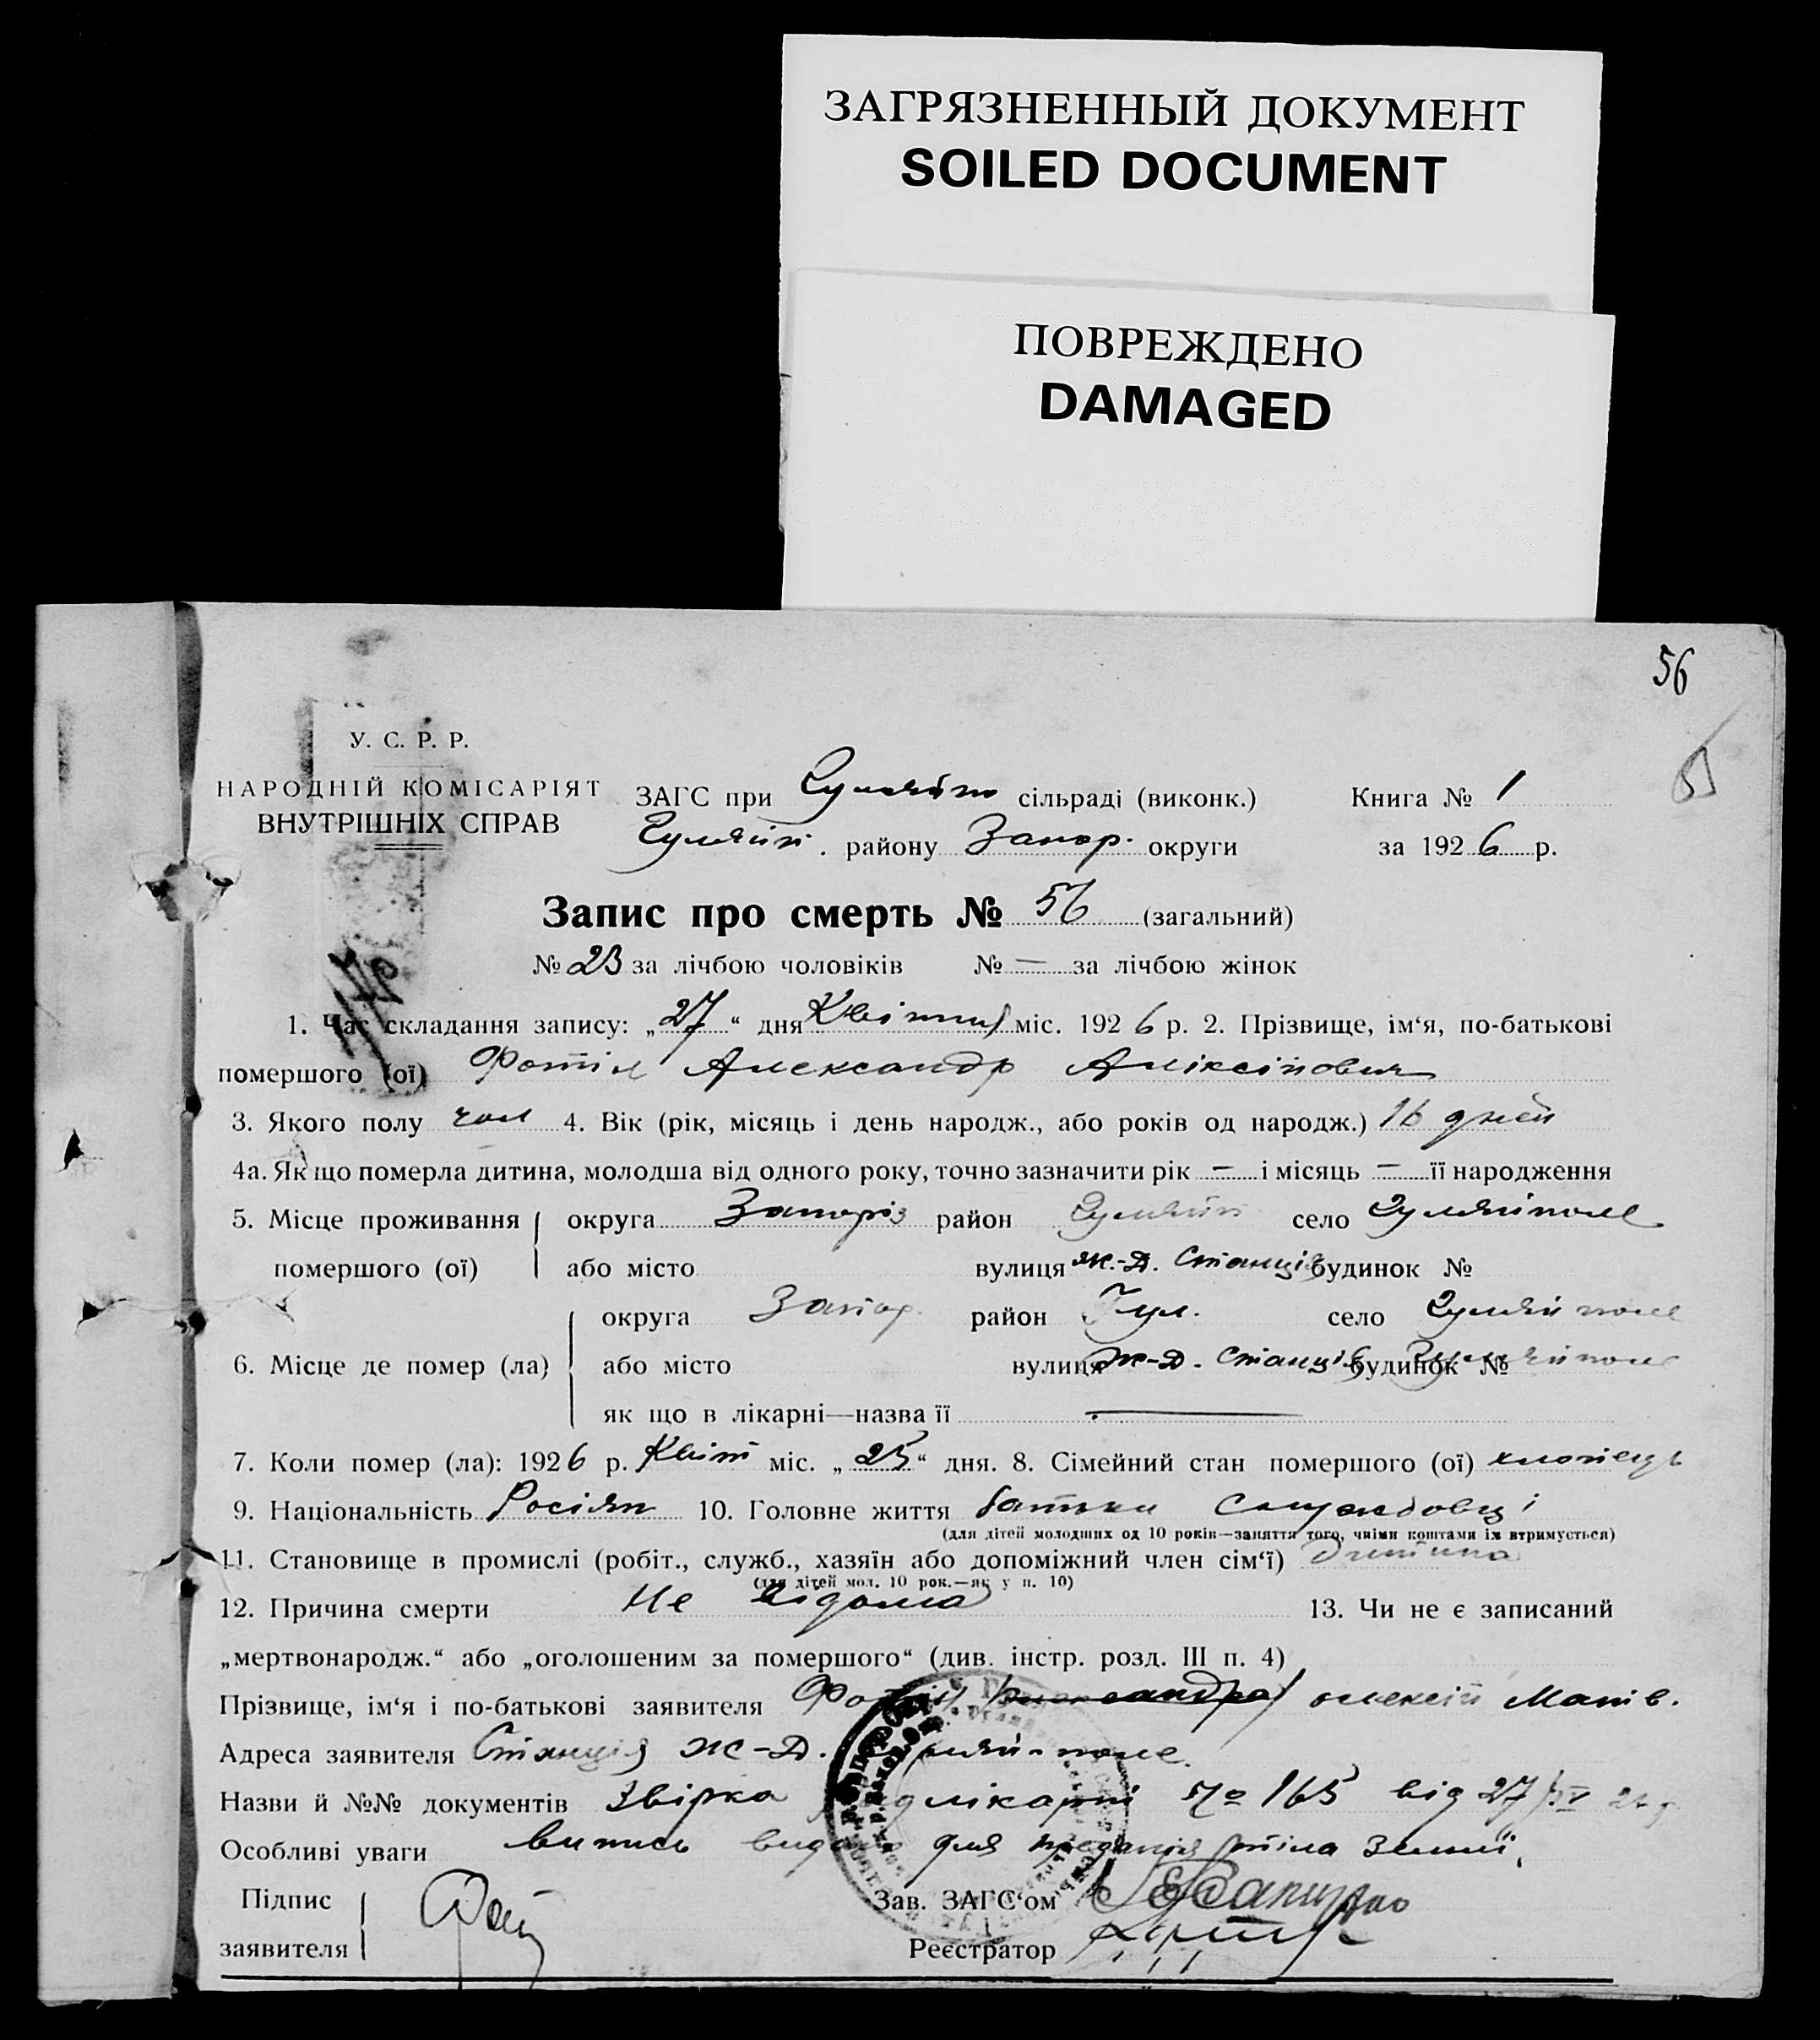 ЗАГРЯЗНЕННЫЙ ДОКУМЕНТ
SOILED DOCUMENT
ПОВРЕЖДЕНО
DAMAGED
56
У. С. Р. Р.
НАРОДНІЙ КОМІСАРІЯТ
ВНУТРІШНІХ СПРАВ
ЗАГС при Гуляйп сільраді (виконк.) Книга № 1
Гуляйп. району Запор. округи за 1926 р.
Запис про смерть № 56 (загальний)
№ 23 за лічбою чоловіків № — за лічбою жінок
1. Час складання запису: „27“ дня Квітня міс. 1926 р. 2. Прізвище, ім‘я, по-батькові
помершого (ої) Фотін Александр Аліксійович
3. Якого полу чол 4. Вік (рік, місяць і день народж., або років од народж.) 16 дней
4а. Як що померла дитина, молодша від одного року, точно зазначити рік — і місяць — її народження
5. Місце проживання округа Запоріз район Гуляйп село Гуляйполе
помершого (ої) або місто вулиця ж.-д. Станція будинок №
округа Запор. район Гул. село Гуляйполе
6. Місце де помер (ла) або місто вулиця ж-д. Станція будинок № Гуляйполе
як що в лікарні—назва її —
7. Коли помер (ла): 1926 р. Квіт міс. „25“ дня. 8. Сімейний стан помершого (ої) хлопець
9. Національність Росіян 10. Головне життя батьки Службовці
(для дітей молодших од 10 років—заняття того, чиїми коштами їх втримується)
11. Становище в промислі (робіт., служб., хазяїн або допоміжний член сім‘ї) Дитина
(для дітей мол. 10 рок.—як у п. 10)
12. Причина смерти Не відома 13. Чи не є записаний
„мертвонародж.“ або „оголошеним за помершого“ (див. інстр. розд. III п. 4)
Прізвище, ім‘я і по-батькові заявителя Фотін Александра олексій Матв.
Адреса заявителя Станція ж-д. Гуляй-поле.
Назви й №№ документів Звірка лікарні № 165 від 27/IV 26 р.
Особливі уваги Випись видана для предання тіла Землі.
Підпис
заявителя
Зав. ЗАГС‘ом
Реєстратор